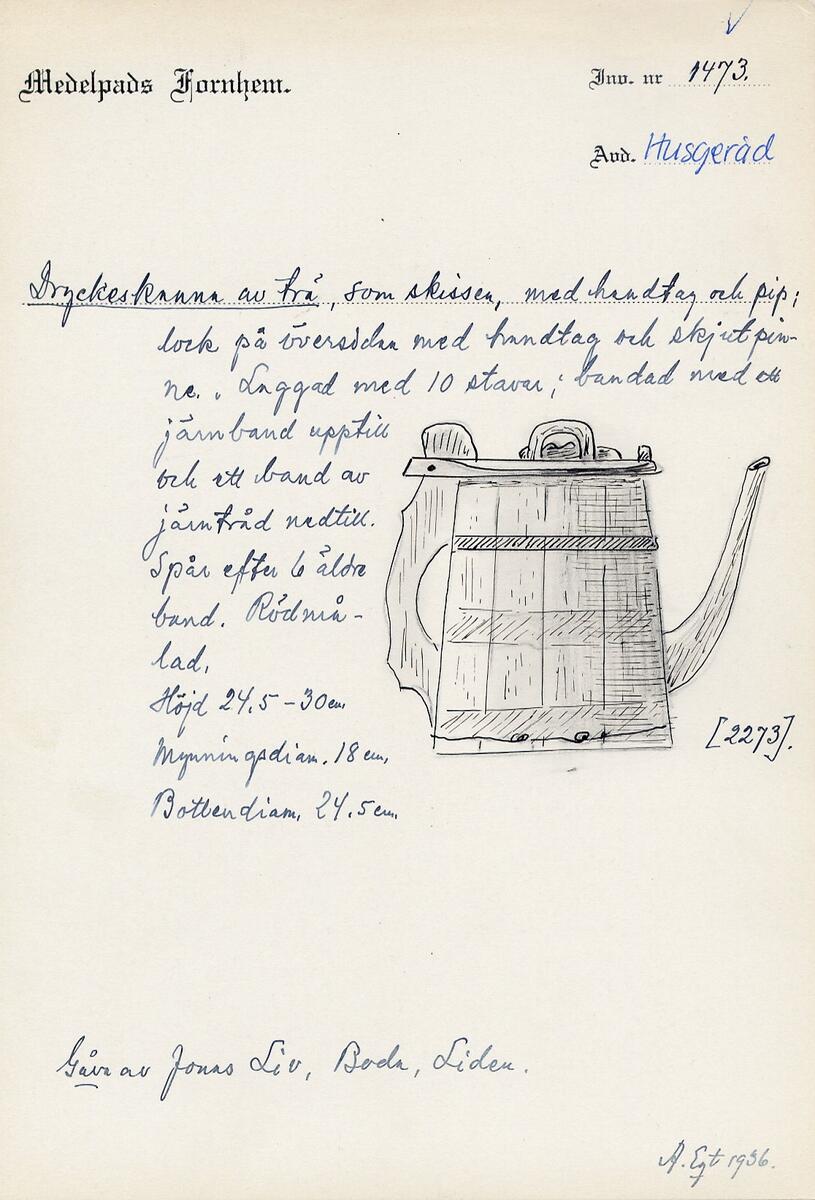 Medelpads Fornhem.
Inv. nr 1473.
Avd. Husgeråd
Dryckeskanna av trä, som skissen, med handtag och pip;
lock på översidan med handtag och skjutpin-
ne. Laggad med 10 stavar; bandad med ett
järnband upptill
och ett band av
järntråd nedtill.
Spår efter 6 äldre
band. Rödmå-
lad.
Höjd 24.5 - 30 cm.
Mynningsdiam. 18 cm.
Bottendiam. 24.5 cm.
[2273].
Gåva av Jonas Liv, Boda, Liden.
A. Egt 1936.